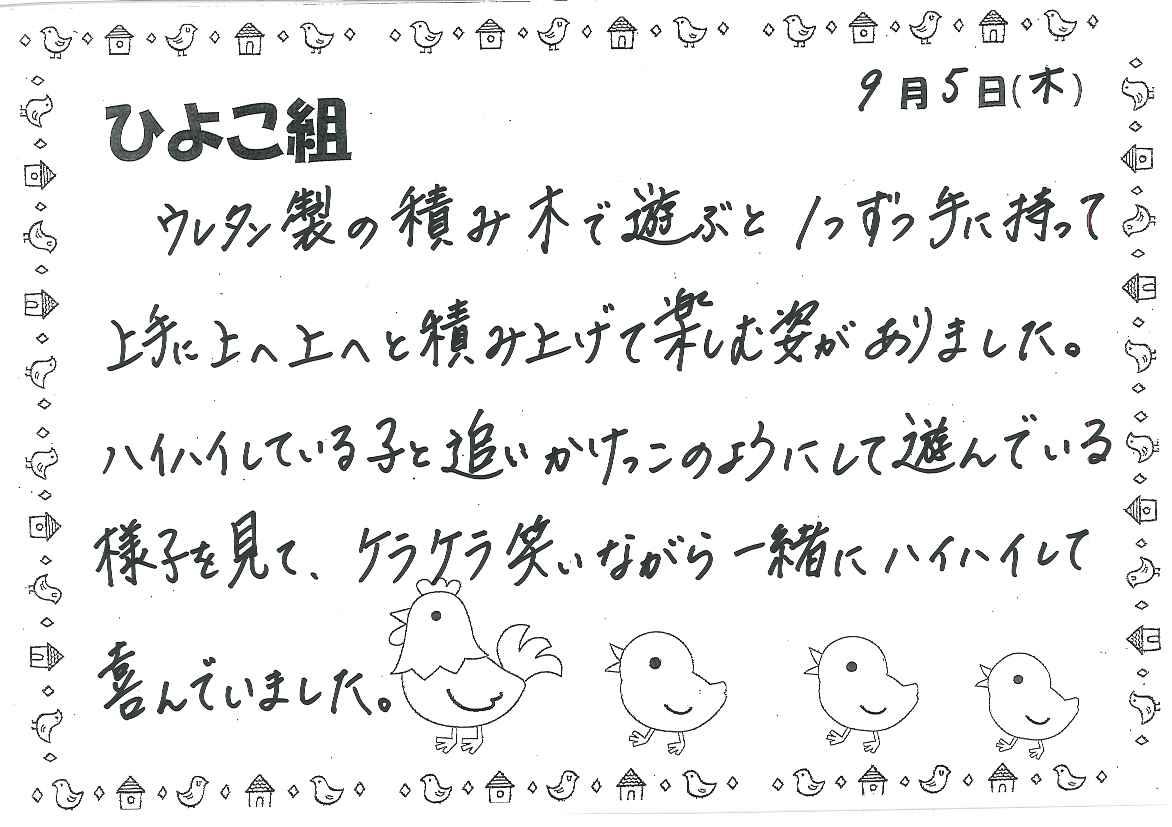 9月5日(木)
ひよこ組
ウレタン製の積み木で遊ぶと1つずつ手に持って
上手に上へ上へと積み上げて楽しむ姿がありました。
ハイハイしている子と追いかけっこのようにして遊んでいる
様子を見て、ケラケラ笑いながら一緒にハイハイして
喜んでいました。